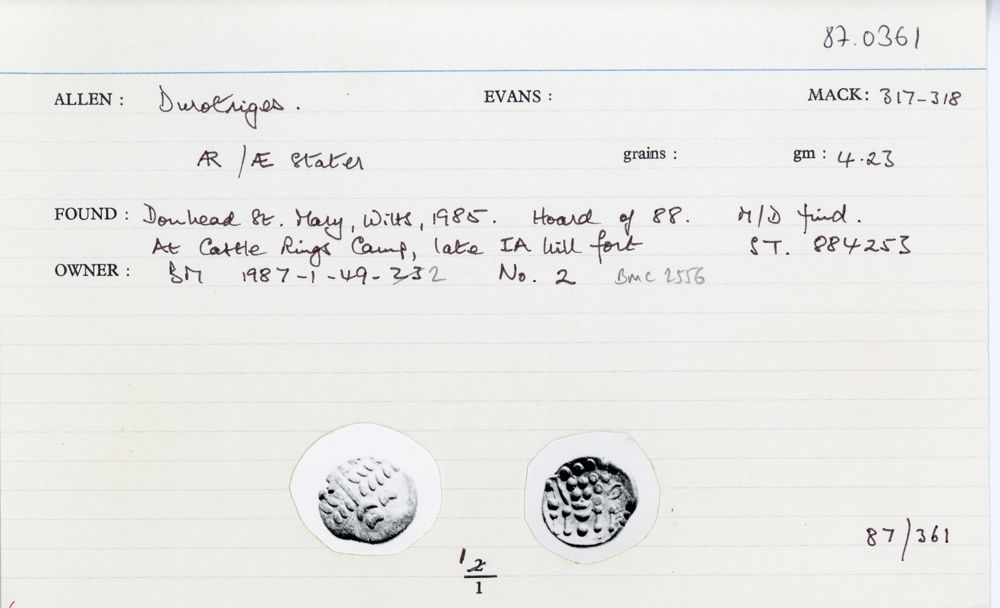 87.0361
ALLEN : Durotriges. EVANS : MACK: 317-318
ÆR / Æ Stater grains : gm : 4.23
FOUND : Donhead St. Mary, Wilts, 1985. Hoard of 88. M/D find.
At Castle Rings Camp, late IA hill fort ST. 884253
OWNER : BM 1987-1-49-232 No. 2 BMC 2556
87/361
1